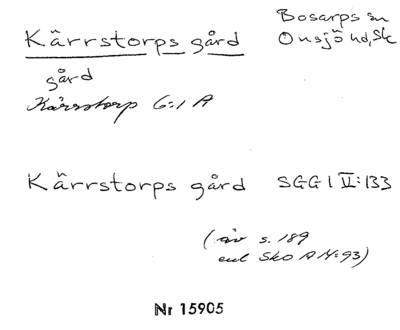 Kärrstorps gård
Bosarps sn
Onsjö hd, Sk
gård
Kärrstorp 6:1 A
Kärrstorps gård SGGI II:133
(äv s. 189
enl Sko A 14:93)
Nr 15905